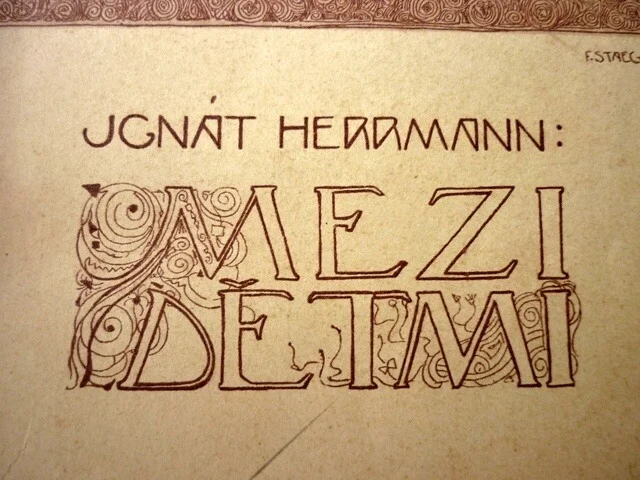 F. STAEG
JGNÁT HERRMANN:
MEZI
DĚTMI